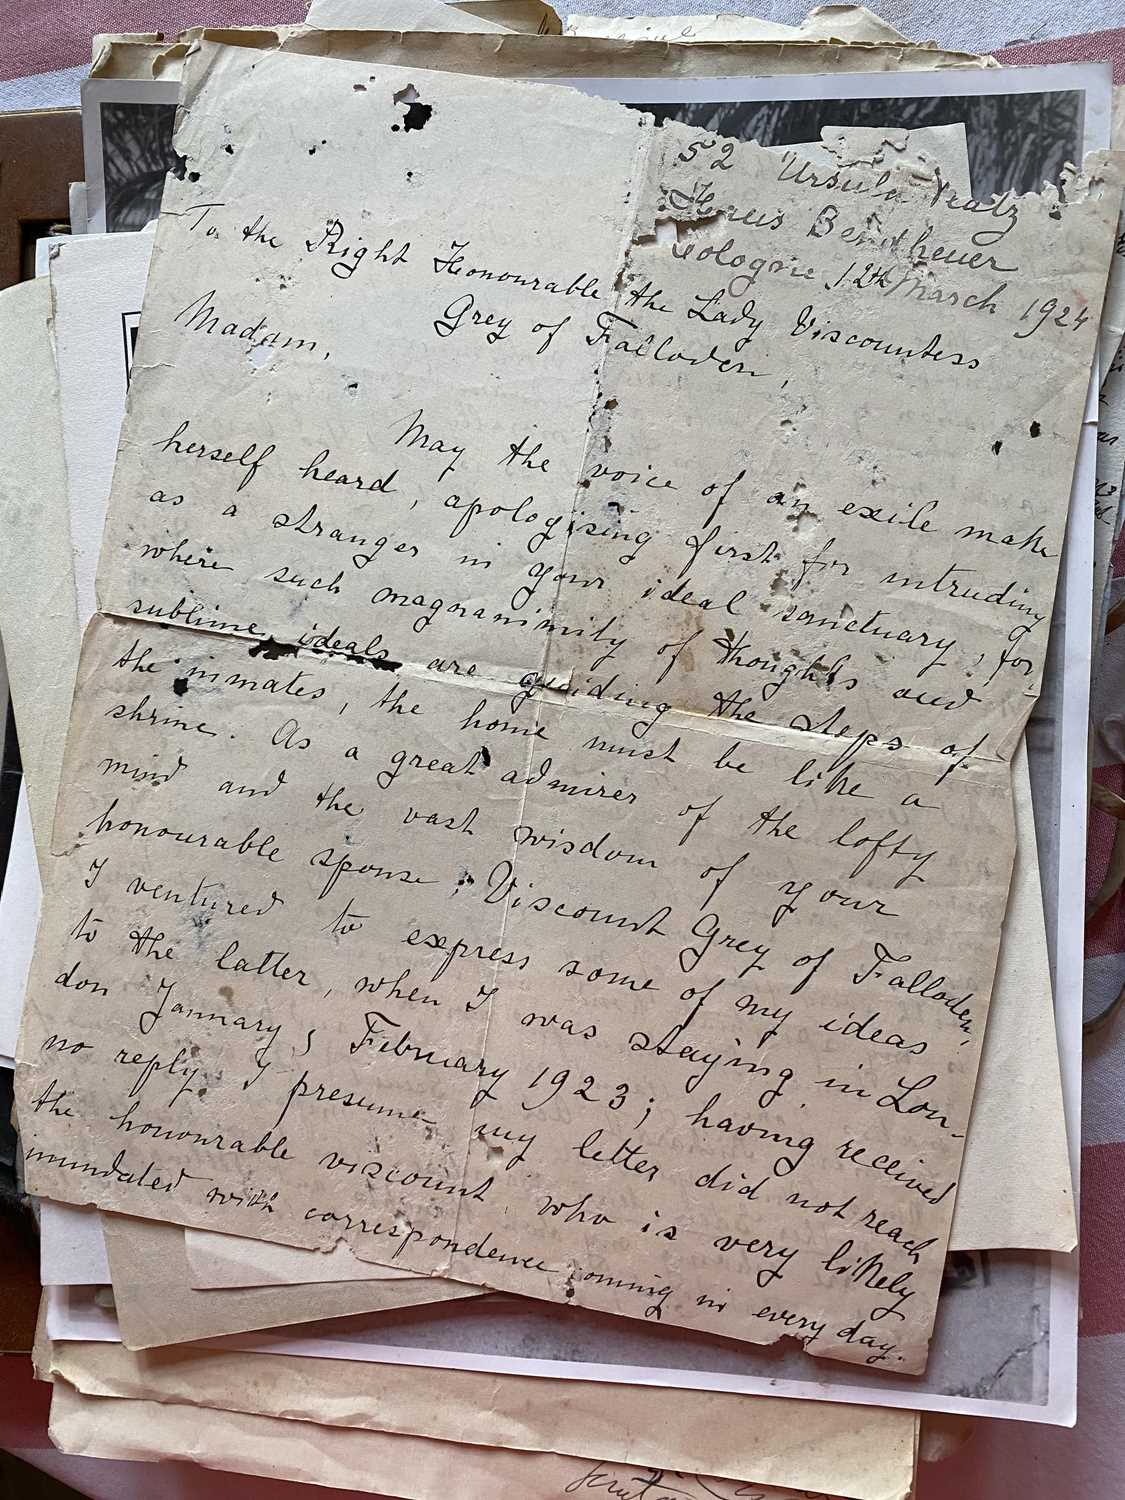 52 Ursula Platz
Haus Bendheuer
Cologne, 12th March 1924
To the Right Honourable the Lady Viscountess
Grey of Falloden,
Madam,
May the voice of an exile make
herself heard, apologising first for intruding
as a stranger in your ideal sanctuary, for
where such magnanimity of thoughts and
sublime ideals are guiding the steps of
the inmates, the home must be like a
shrine. As a great admirer of the lofty
mind and the vast wisdom of your
honourable spouse, Viscount Grey of Falloden,
I ventured to express some of my ideas
to the latter, when I was staying in Lon-
don January, February 1923; having received
no reply I presume my letter did not reach
the honourable viscount who is very likely
inundated with correspondence coming in every day.